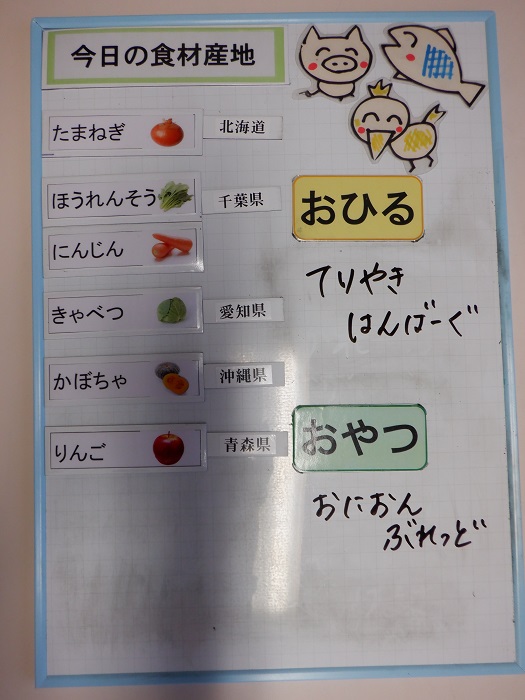 今日の食材産地
たまねぎ 北海道
ほうれんそう 千葉県
にんじん
きゃべつ 愛知県
かぼちゃ 沖縄県
りんご 青森県
おひる
てりやき
はんばーぐ
おやつ
おにおん
ぶれっど